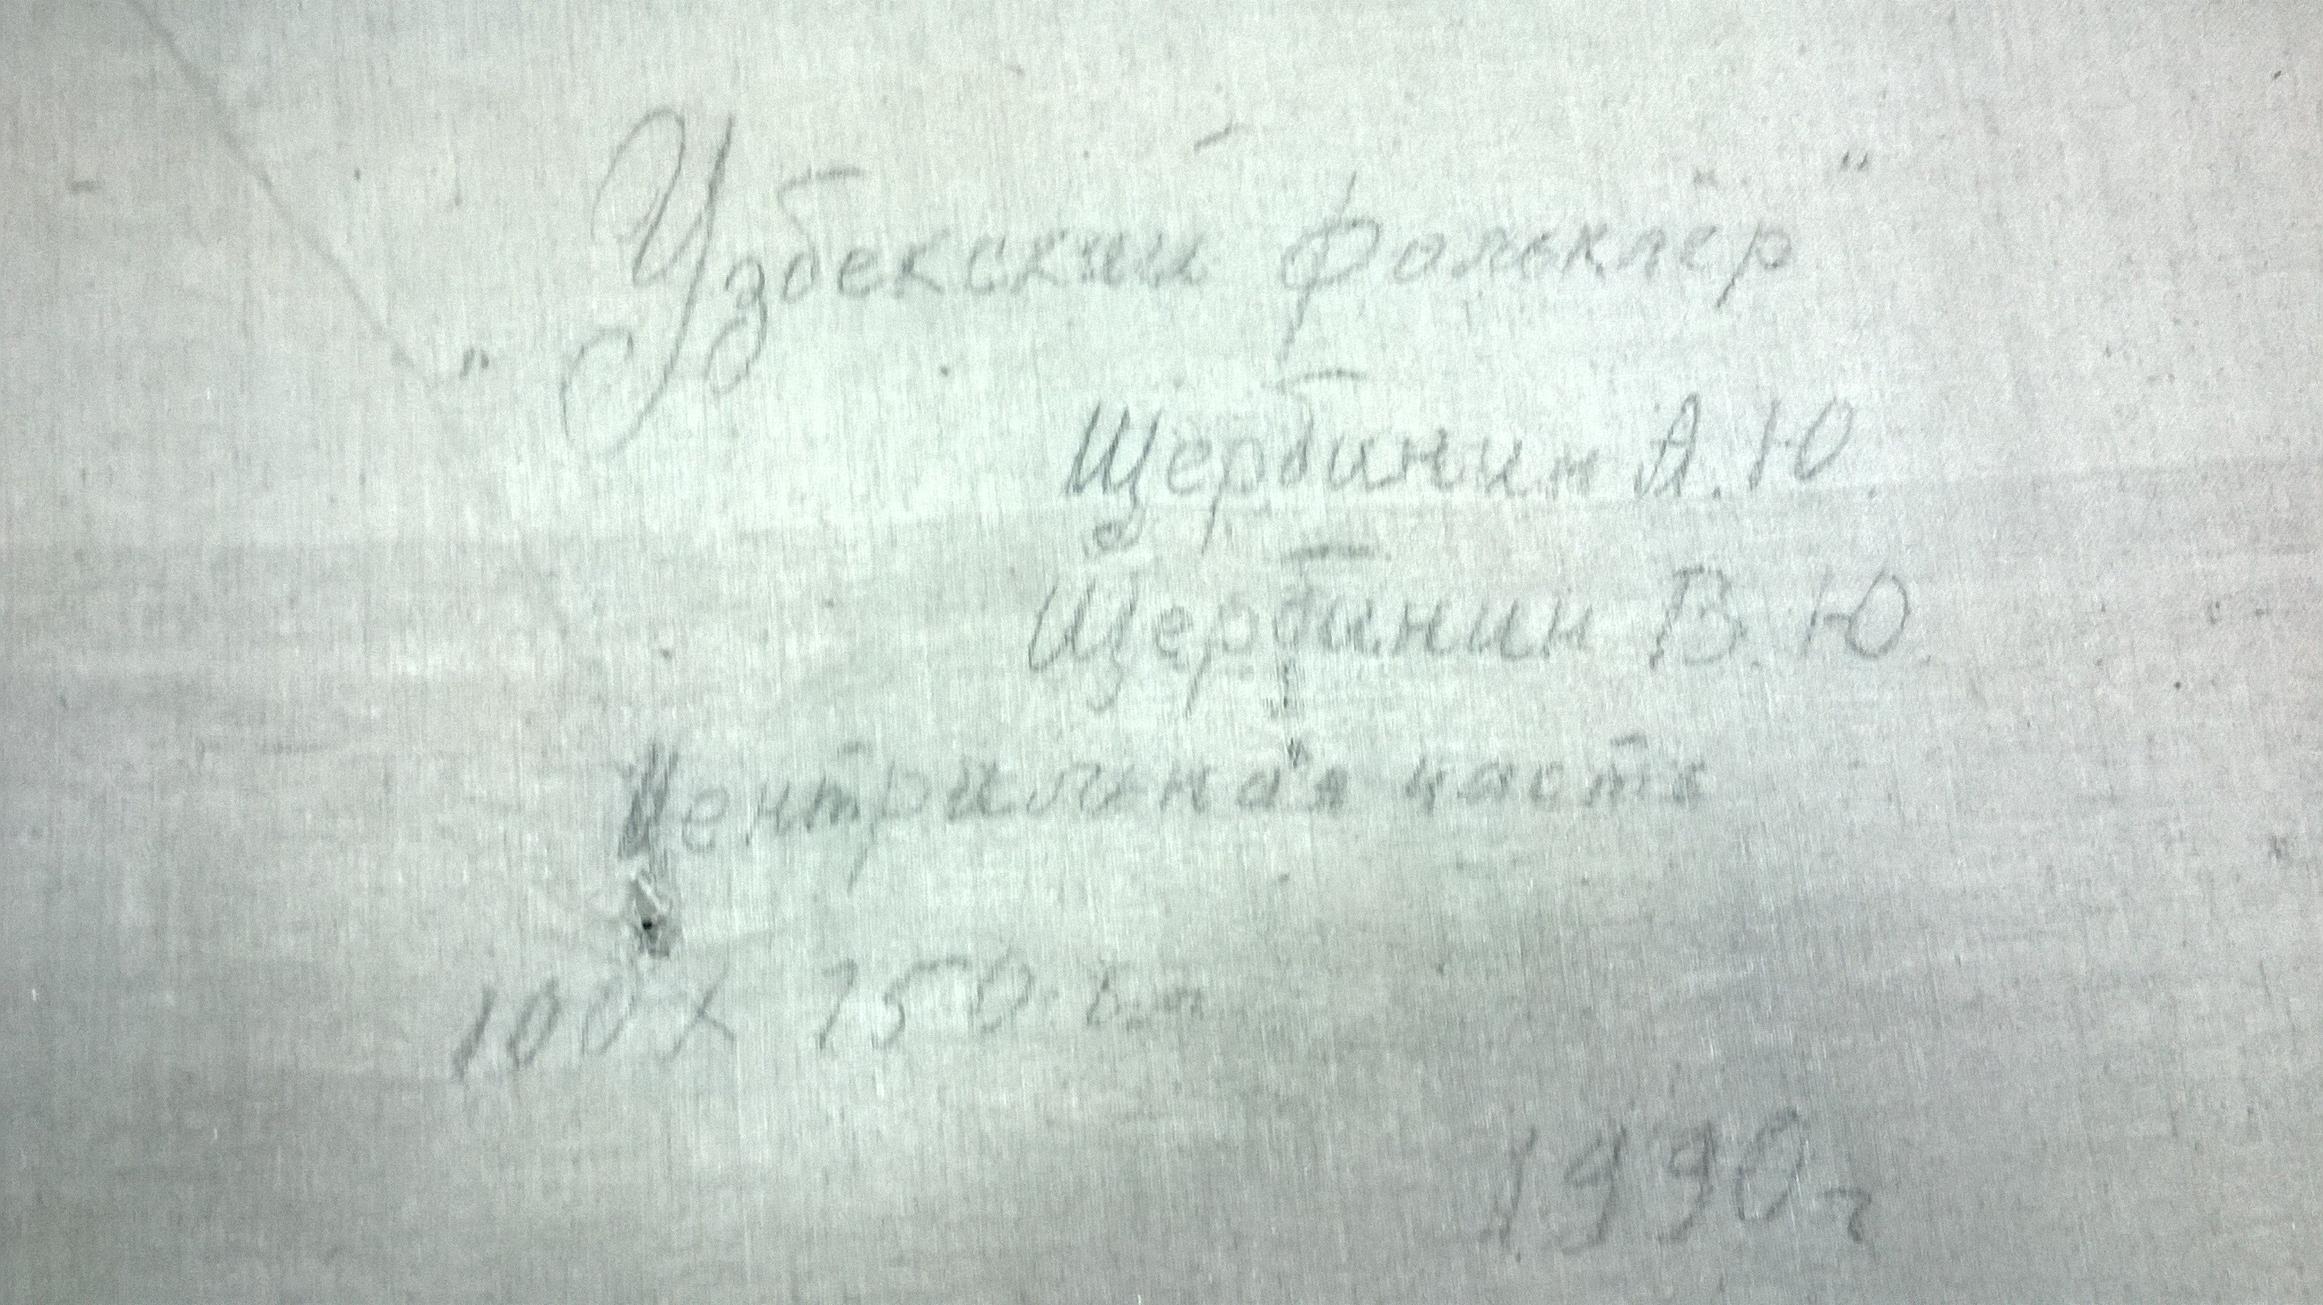 "Узбекский фольклёр"
Щербинин А.Ю.
Щербинин В.Ю.
Центральная часть
100 х 150
1990г